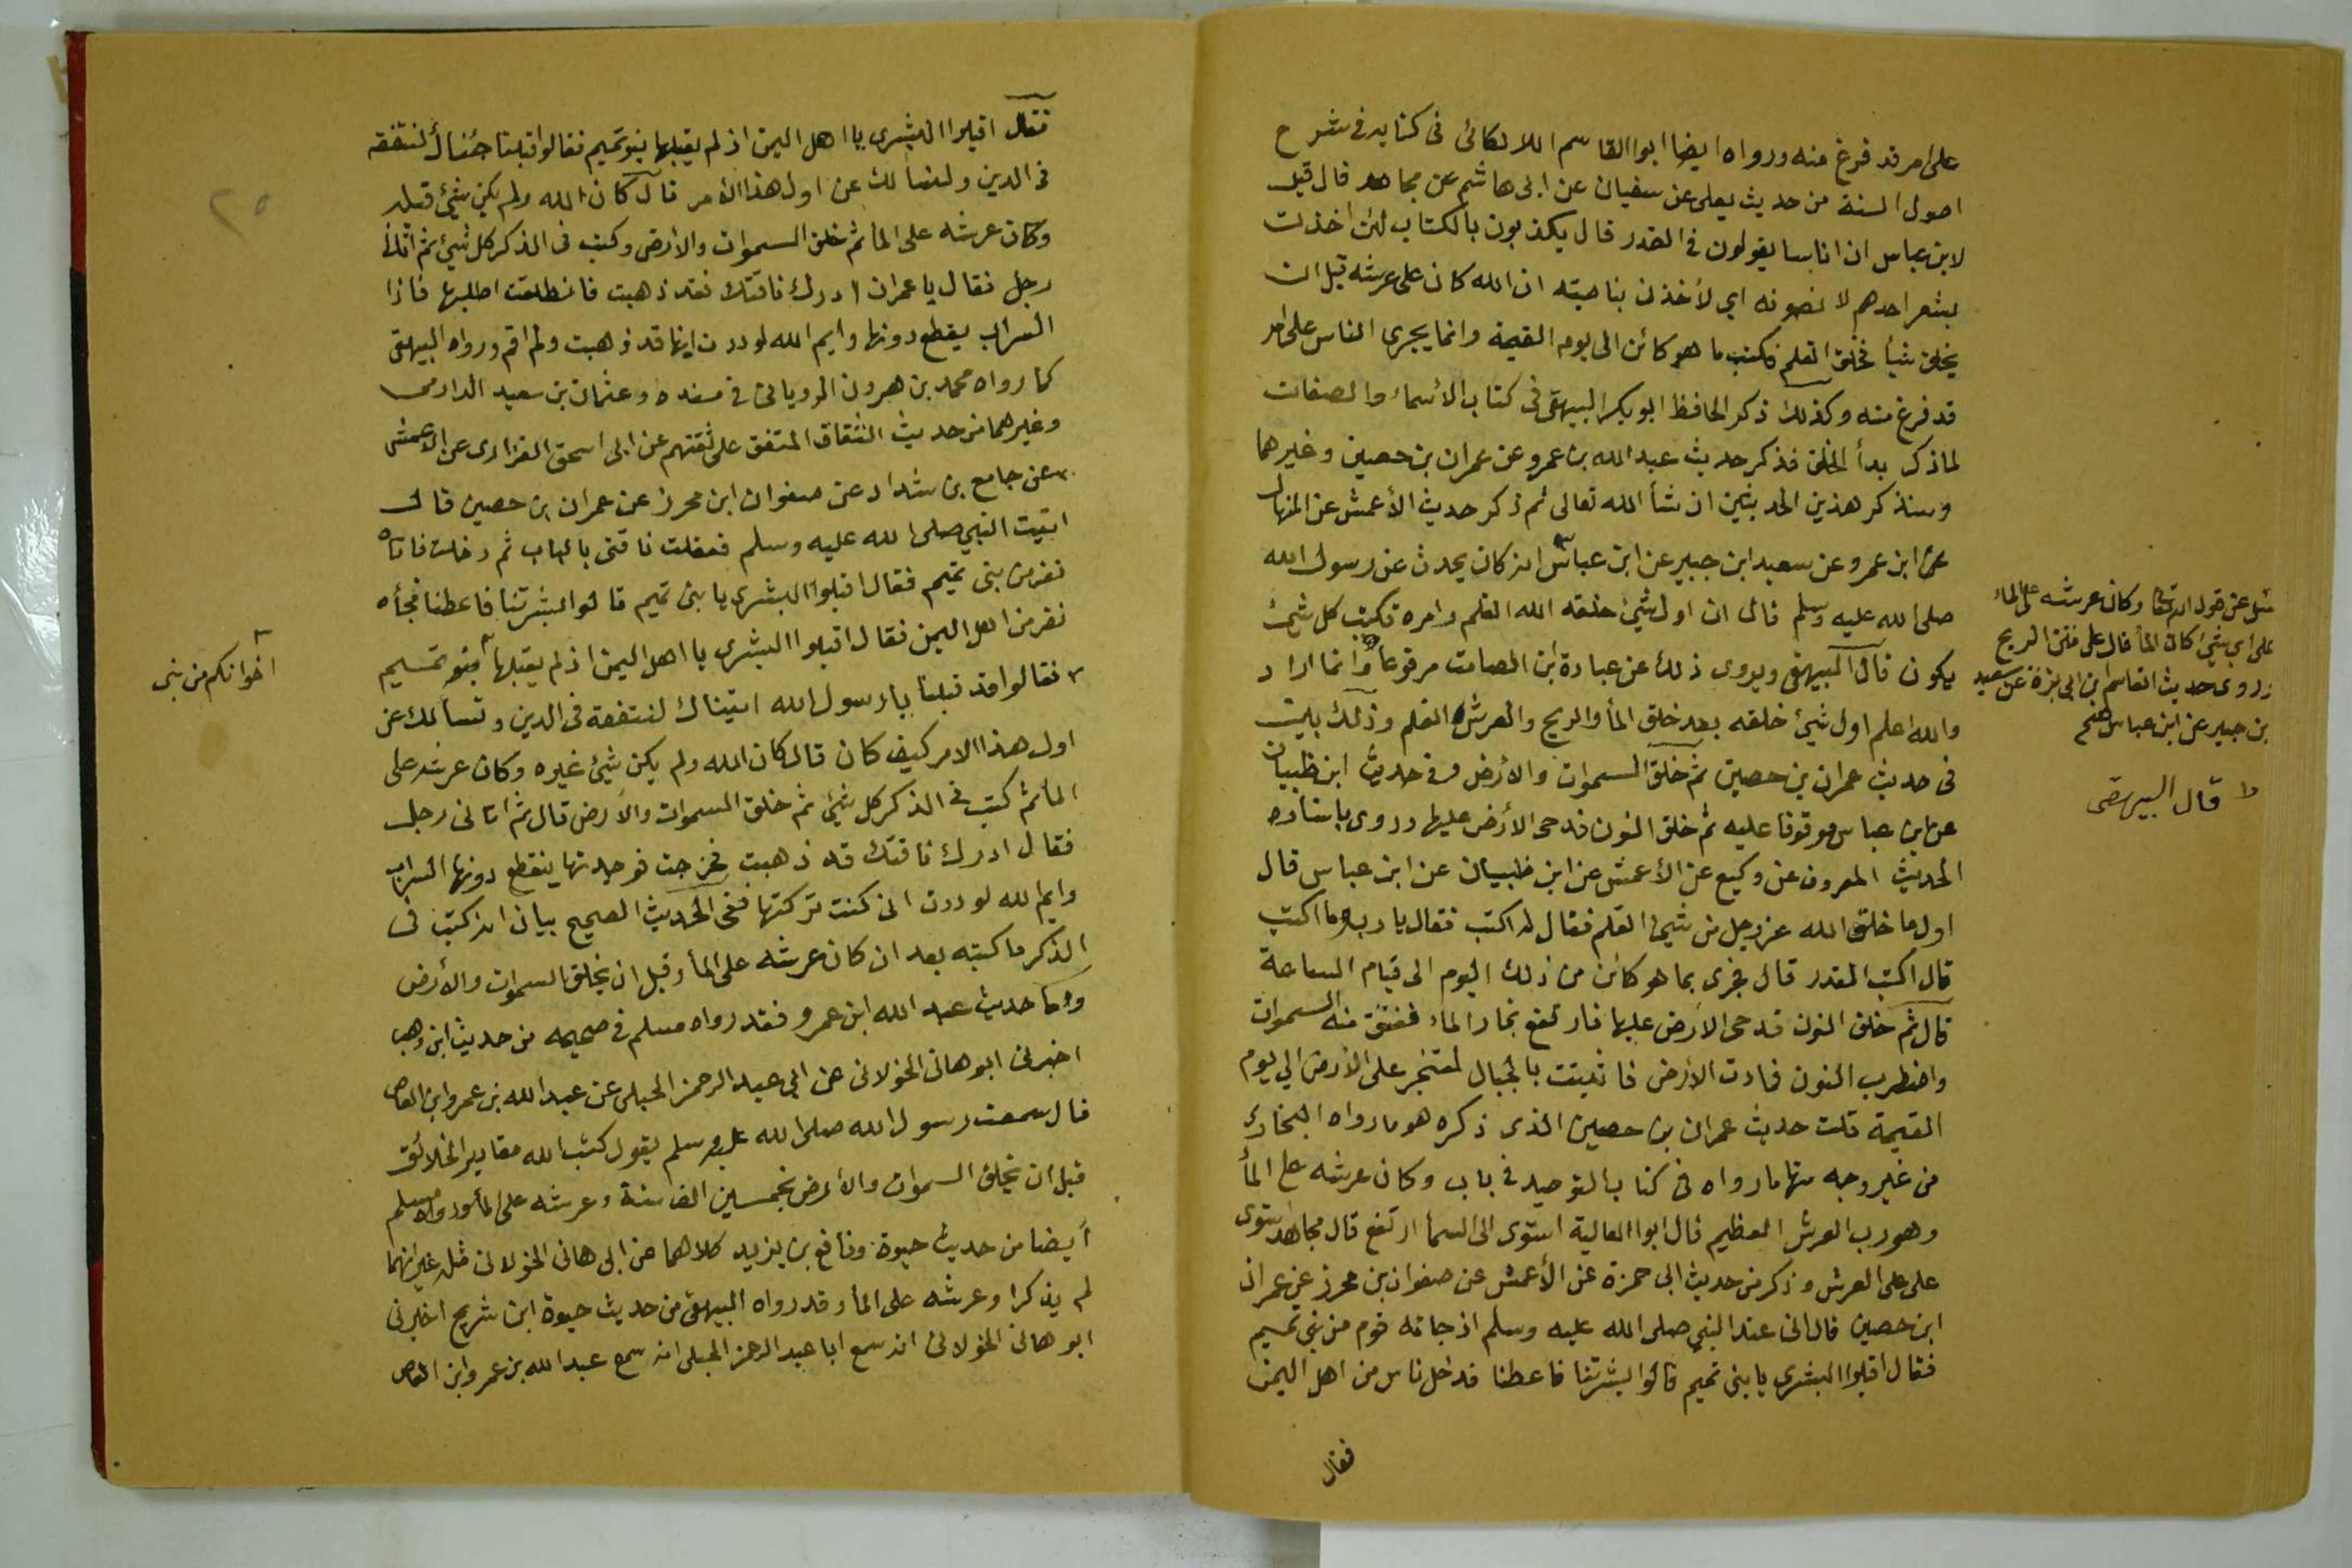 على امر قد فرغ منه ورواه ايضا ابوا القاسم اللالكائى فى كتابه فى شرح
اصول السنة من حديث يعلى عن سفيان عن ابى هاشم عن مجاهد قال قيل
لابن عباس ان اناسا يقولون فى القدر قال يكذبون بالكتاب لئن اخذت
بشعر احدهم لا نصونه اي لأخذن بناصيته ان الله كان على عرشه قبل ان
يخلق شيأ فخلق القلم فكتب ما هو كائن الى يوم القيمة وانما يجرى الناس على امر
قد فرغ منه وكذلك ذكر الحافظ ابو بكر البيهقى فى كتاب الأسماء والصفات
لما ذكر بدأ الخلق فذكر حديث عبد الله بن عمرو عن عمران بن حصين وغيرهما
وسنذكر هذين الحديثين ان شأ الله تعالى ثم ذكر حديث الأعمش عن المنهال
عن ابن عمرو عن سعيد ابن جبير عن ابن عباس انه كان يحدث عن رسول الله
صلى الله عليه وسلم قال ان اول شئ خلقه الله القلم وامره فكتب كل شئ
يكون قال البيهقى ويروى ذلك عن عبادة ابن الصامت مرفوعا وانما اراد
والله اعلم اول شئ خلقه بعد خلق المأ والريح والعرش القلم وذلك بين
فى حديث عمران بن حصين ثم خلق السموات والأرض وفى حديث ابن ظبيان
عن ابن عباس موقوفا عليه ثم خلق النون فدحى الأرض عليها وروى باسناده
الحديث المعروف عن وكيع عن الأعمش عن ابن ظبيان عن ابن عباس قال
اول ما خلق الله عز وجل من شئ القلم فقال له اكتب فقال يا رب وما اكتب
قال اكتب القدر قال فجرى بما هو كائن من ذلك اليوم الى قيام الساعة
قال ثم خلق النون فدحى الأرض عليها فارتفع بخار الماء ففتق منه السموات
واضطرب النون فمادت الأرض فاثبتت بالجبال لتفخر على الأرض الي يوم
القيمة قلت حديث عمران بن حصين الذى ذكره هو ما رواه البخارى
من غير وجه منها ما رواه فى كتاب التوحيد فى باب وكان عرشه على المأ
وهو رب العرش العظيم قال ابوا العالية استوى الى السمأ ارتفع قال مجاهد استوى
على على العرش وذكر من حديث ابى حمزة عن الأعمش عن صفوان بن محرز عن عمران
ابن حصين قال انى عند النبي صلى الله عليه وسلم اذ جائه قوم من بني تميم
فقال اقبلوا البشرى يا بنى تميم قالوا بشرتنا فاعطنا فدخل ناس من اهل اليمن
فقال
سئل عن قول الله تعالى وكان عرشه على الماء
على اي شئ كان المأ قال على متن الريح
وروى حديث القاسم ابن ابى بزة عن سعيد
بن جبير عن ابن عباس صح
قال البيهقى
٢٥
فقال اقبلوا البشرى يا اهل اليمن اذ لم يقبلها بنو تميم فقالوا قبلنا جئناك لنتفقه
فى الدين ولنسألك عن اول هذا الأمر قال كان الله ولم يكن شئ قبله
وكان عرشه على المأ ثم خلق السموات والأرض وكتب فى الذكر كل شئ ثم اتانى
رجل فقال يا عمران ادرك ناقتك فقد ذهبت فانطلقت اطلبها فاذا
السراب يقطع دونها وايم الله لوددت انها قد ذهبت ولم اقم ورواه البيهقى
كما رواه محمد بن هرون الرويانى فى مسنده وعثمان بن سعيد الدارمى
وغيرهما من حديث الثقاة المتفق على ثقتهم عن ابى اسحق الفزارى عن الأعمش
عن جامع بن شداد عن صفوان ابن محرز عن عمران بن حصين قال
اتيت النبي صلى الله عليه وسلم فعقلت ناقتى بالباب ثم دخلت فاتاه
نفر من بنى تميم فقال اقبلوا البشرى يا بنى تميم قالوا بشرتنا فاعطنا فجأه
نفر من اهل اليمن فقال اقبلوا البشرى يا اهل اليمن اذ لم يقبلها بنو تميم
فقالوا قد قبلنا يا رسول الله اتيناك لنتفقه فى الدين ونسألك عن
اول هذا الامر كيف كان قال كان الله ولم يكن شئ غيره وكان عرشه على
المأ ثم كتب فى الذكر كل شئ ثم خلق السموات والأرض قال ثم اتانى رجل
فقال ادرك ناقتك قد ذهبت فخرجت فوجدتها ينقطع دونها السراب
وايم الله لوددت انى كنت تركتها ففى الحديث الصحيح بيان انه كتب فى
الذكر ما كتبه بعد ان كان عرشه على المأ وقبل ان يخلق السموات والأرض
واما حديث عبد الله ابن عمرو فقد رواه مسلم فى صحيحه من حديث ابن وهب
اخبرنى ابو هانى الخولانى عن ابي عبد الرحمن الحبلى عن عبد الله بن عمرو ابن العاص
قال سمعت رسول الله صلى الله عليه وسلم يقول كتب الله مقادير الخلائق
قبل ان يخلق السموات والأرض بخمسين الف سنة وعرشه على المأ ورواه مسلم
أيضا من حديث حيوة ونافع بن يزيد كلاهما عن ابى هانى الخولانى مثله غير انهما
لم يذكرا وعرشه على المأ وقد رواه البيهقى من حديث حيوة ابن شريح اخبرنى
ابو هانى الخولانى انه سمع ابا عبد الرحمن الحبلى انه سمع عبد الله بن عمرو ابن العاص
اخوانكم من بنى